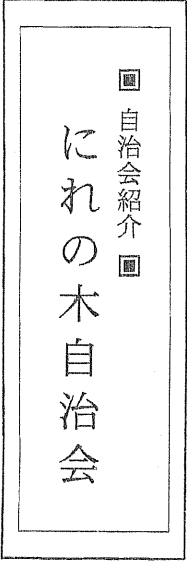 ▣ 自治会紹介 ▣
にれの木自治会